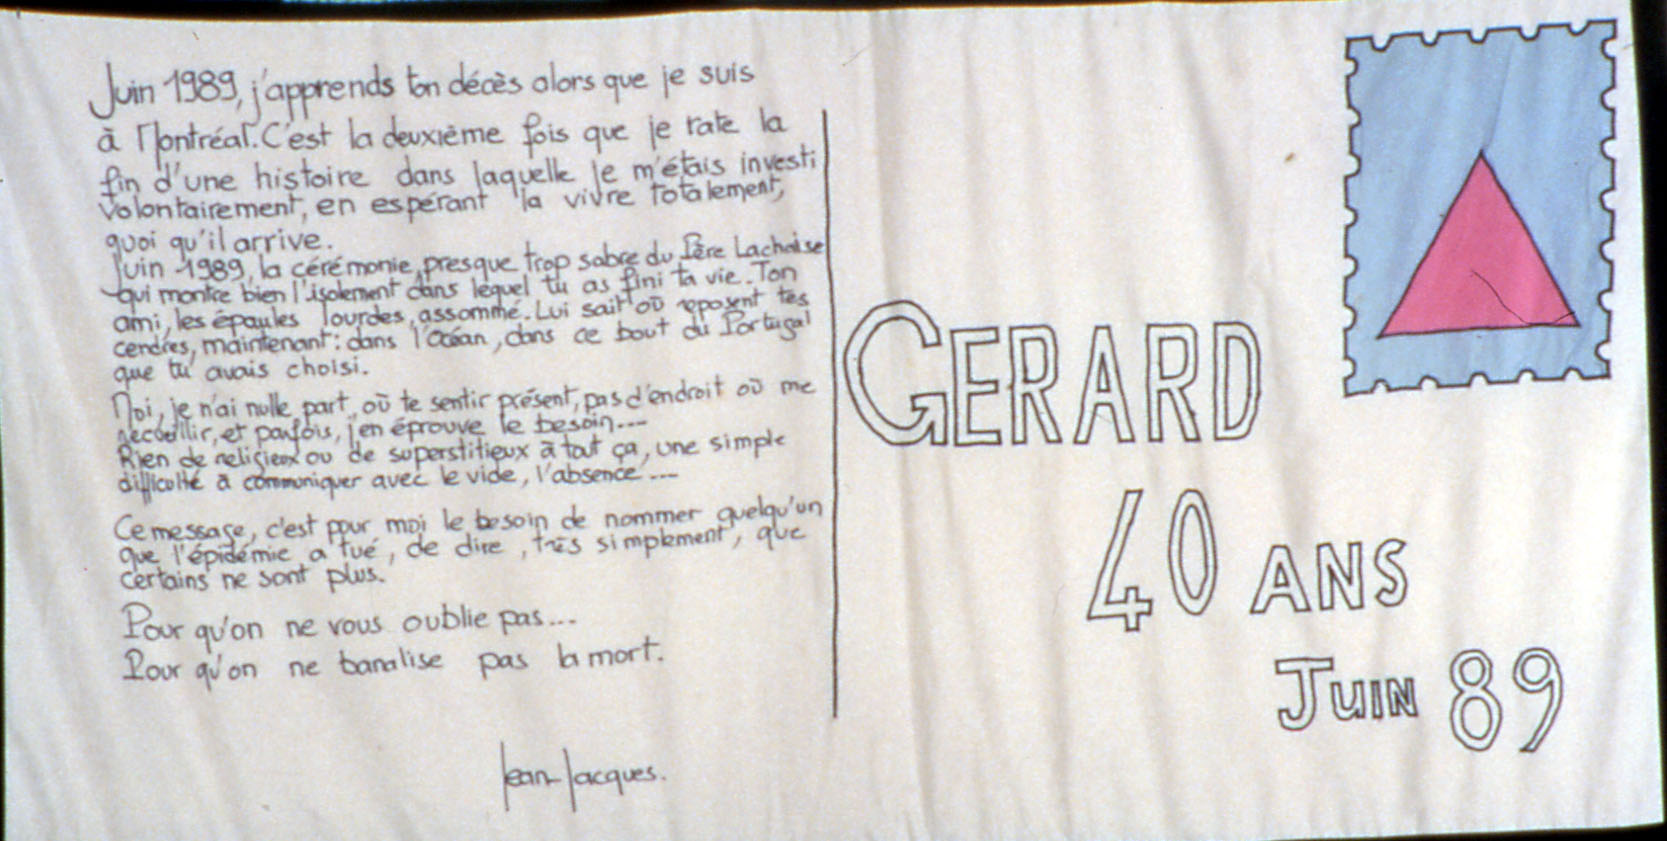 Juin 1989, j'apprends ton décès alors que je suis
à Montréal. C'est la deuxième fois que je rate la
fin d'une histoire dans laquelle je m'étais investi
volontairement, en espérant la vivre totalement,
quoi qu'il arrive.
Juin 1989, la cérémonie, presque trop sobre du Père Lachaise
qui montre bien l'isolement dans lequel tu as fini ta vie. Ton
ami, les épaules lourdes, assommé. Lui sait où reposent tes
cendres, maintenant : dans l'océan, dans ce bout du Portugal
que tu avais choisi.
Moi, je n'ai nulle part où te sentir présent, pas d'endroit où me
recueillir, et parfois, j'en éprouve le besoin...
Rien de religieux ou de superstitieux à tout ça, une simple
difficulté à communiquer avec le vide, l'absence ....
Ce message, c'est pour moi le besoin de nommer quelqu'un
que l'épidémie a tué, de dire, très simplement, que
certains ne sont plus.
Pour qu'on ne vous oublie pas...
Pour qu'on ne banalise pas la mort.
Jean-Jacques.
GERARD
40 ANS
JUIN 89